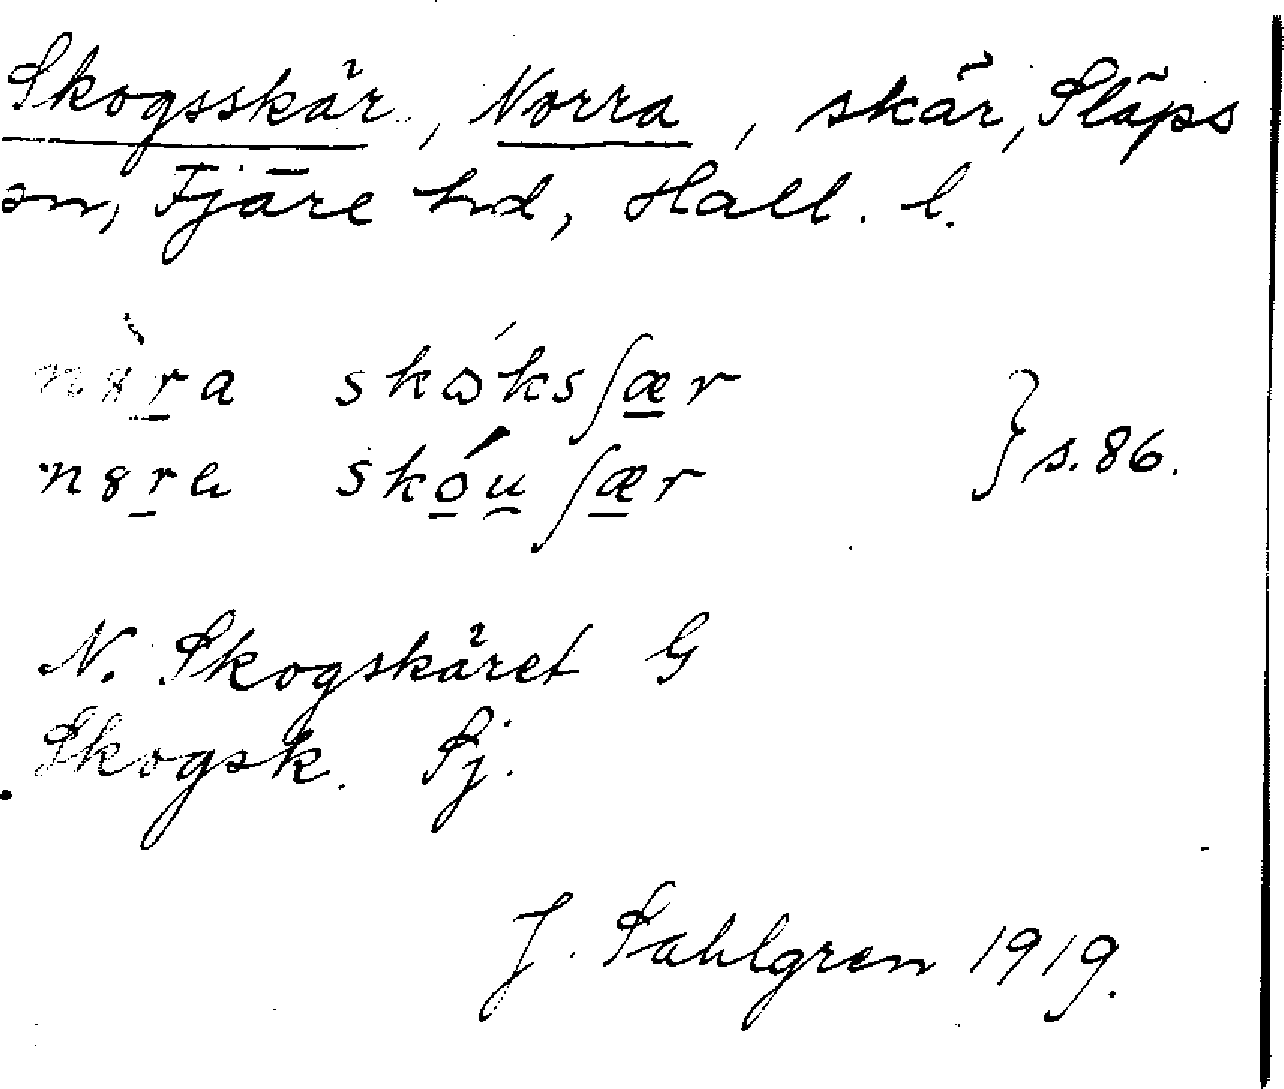 Skogsskär, Norra, skär, Släps
sn, Fjäre hd, Hall. l.
n8̀r̲a skɷ́ksʃæ̲r
n8r̲a skó̲u̲ʃæ̲r } s. 86.
N. Skogskäret G
Skogsk. Sj.
J. Sahlgren 1919.